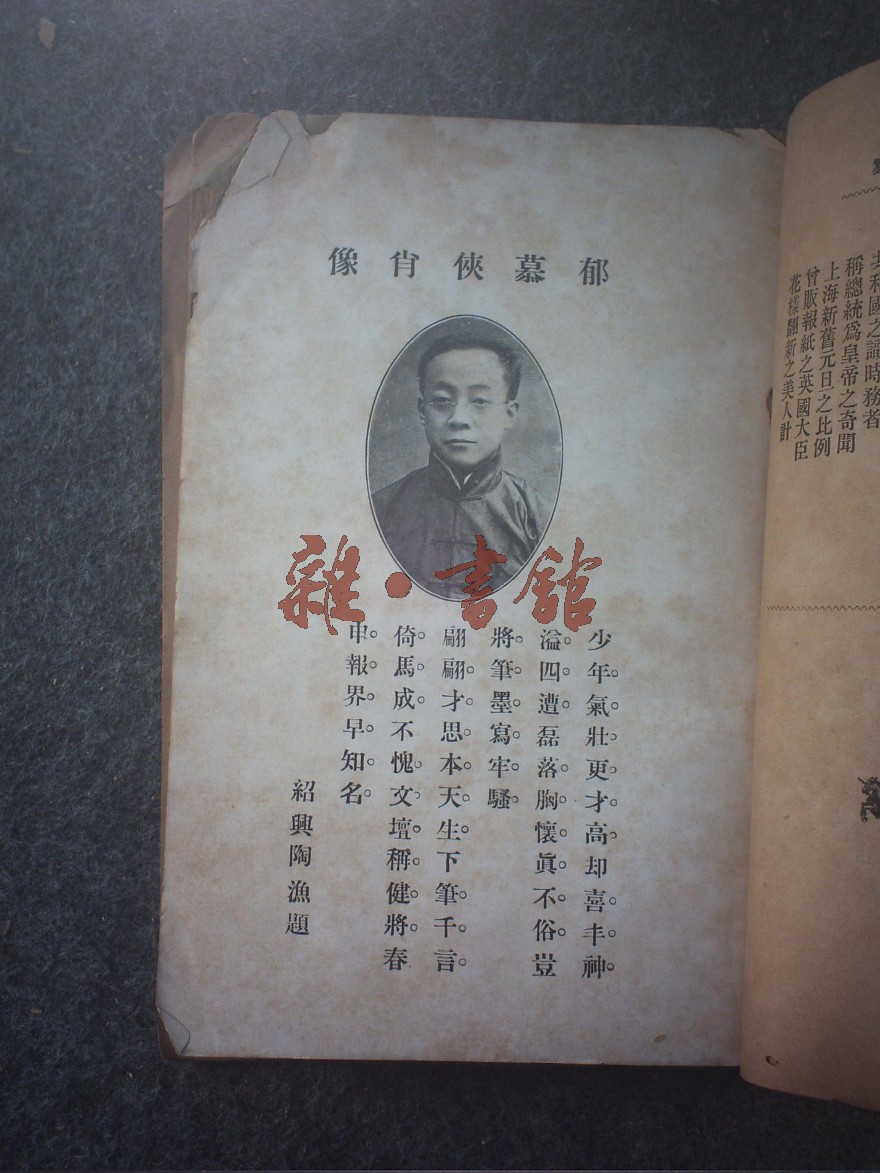 郁慕俠肖像
雜·書館
少年氣壯更才高却喜丰神
溢四遭磊落胸懷眞不俗豈
將筆墨寫牢騷
翩翩才思本天生下筆千言
倚馬成不愧文壇稱健將春
申報界早知名
紹興陶漁題
共和國之識時務者
稱總統爲皇帝之奇聞
上海新舊元旦之比例
曾販報紙之英國大臣
花樣翻新之美人計